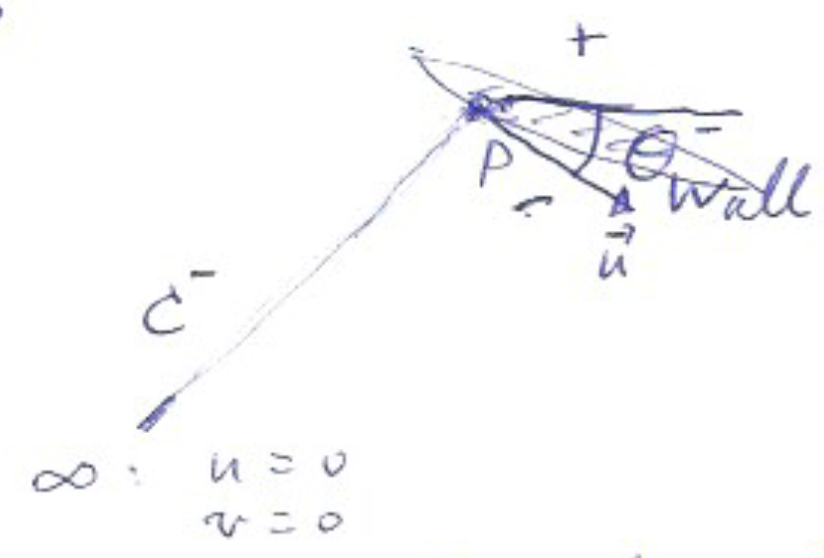 +
P
θ wall
-
u⃗
C⁻
∞ : u = 0
v = 0